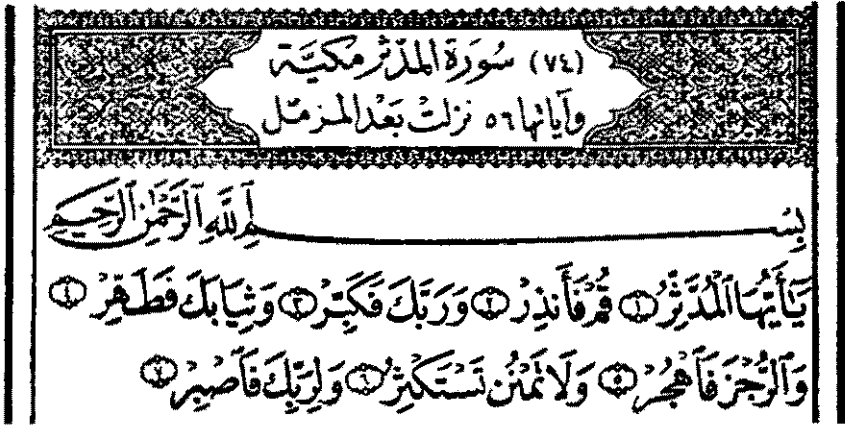 (٧٤) سُورَةُ المدَّثِّر مَكيَّة
وآياتها ٥٦ نزلت بَعْد المزمّل
بِسْمِ ٱللَّهِ ٱلرَّحْمَٰنِ ٱلرَّحِيمِ
يَٰٓأَيُّهَا ٱلْمُدَّثِّرُ ١ قُمْ فَأَنذِرْ ٢ وَرَبَّكَ فَكَبِّرْ ٣ وَثِيَابَكَ فَطَهِّرْ ٤
وَٱلرُّجْزَ فَٱهْجُرْ ٥ وَلَا تَمْنُن تَسْتَكْثِرُ ٦ وَلِرَبِّكَ فَٱصْبِرْ ٧